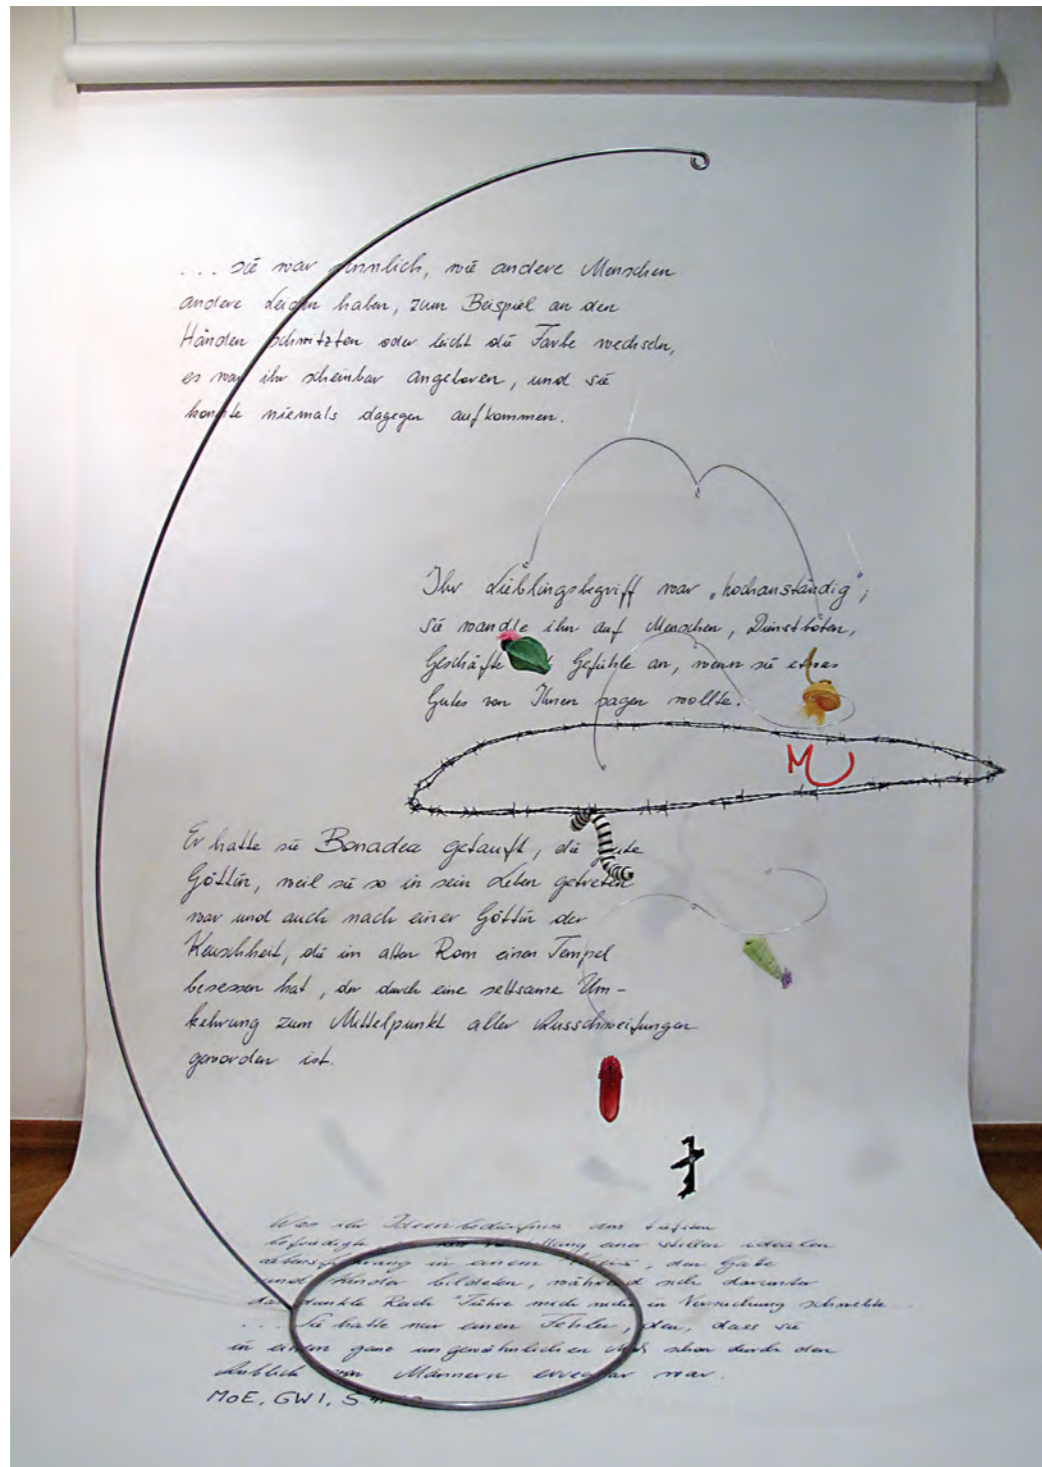 ... sie war sinnlich, wie andere Menschen
andere Leiden haben, zum Beispiel an den
Händen schwitzten oder leicht die Farbe wechseln,
es war ihr scheinbar angeboren, und sie
konnte niemals dagegen aufkommen.
Ihr Lieblingsbegriff war „hochanständig";
sie wandte ihn auf Menschen, Dienstboten,
Geschäfte Gefühle an, wenn sie etwas
Gutes von Ihnen sagen wollte.
M
Er hatte sie Bonadea getauft, die gute
Göttin, weil sie so in sein Leben getreten
war und auch nach einer Göttin der
Keuschheit, die im alten Rom einen Tempel
besessen hat, der durch eine seltsame Um-
kehrung zum Mittelpunkt aller Ausschweifungen
geworden ist.
Was ihr Ideenbedürfnis am tiefsten
befriedigte Vorstellung einer stillen idealen
Lebensführung in einem , den Gatte
und Kinder bildeten, während sich darunter
das dunkle Reich Führe mich nicht in Versuchung schwebte ...
... Sie hatte nur einen Fehler, den, dass sie
in einem ganz ungewöhnlichen Maß schon durch den
Anblick von Männern erregbar war.
MoE, GW1, S